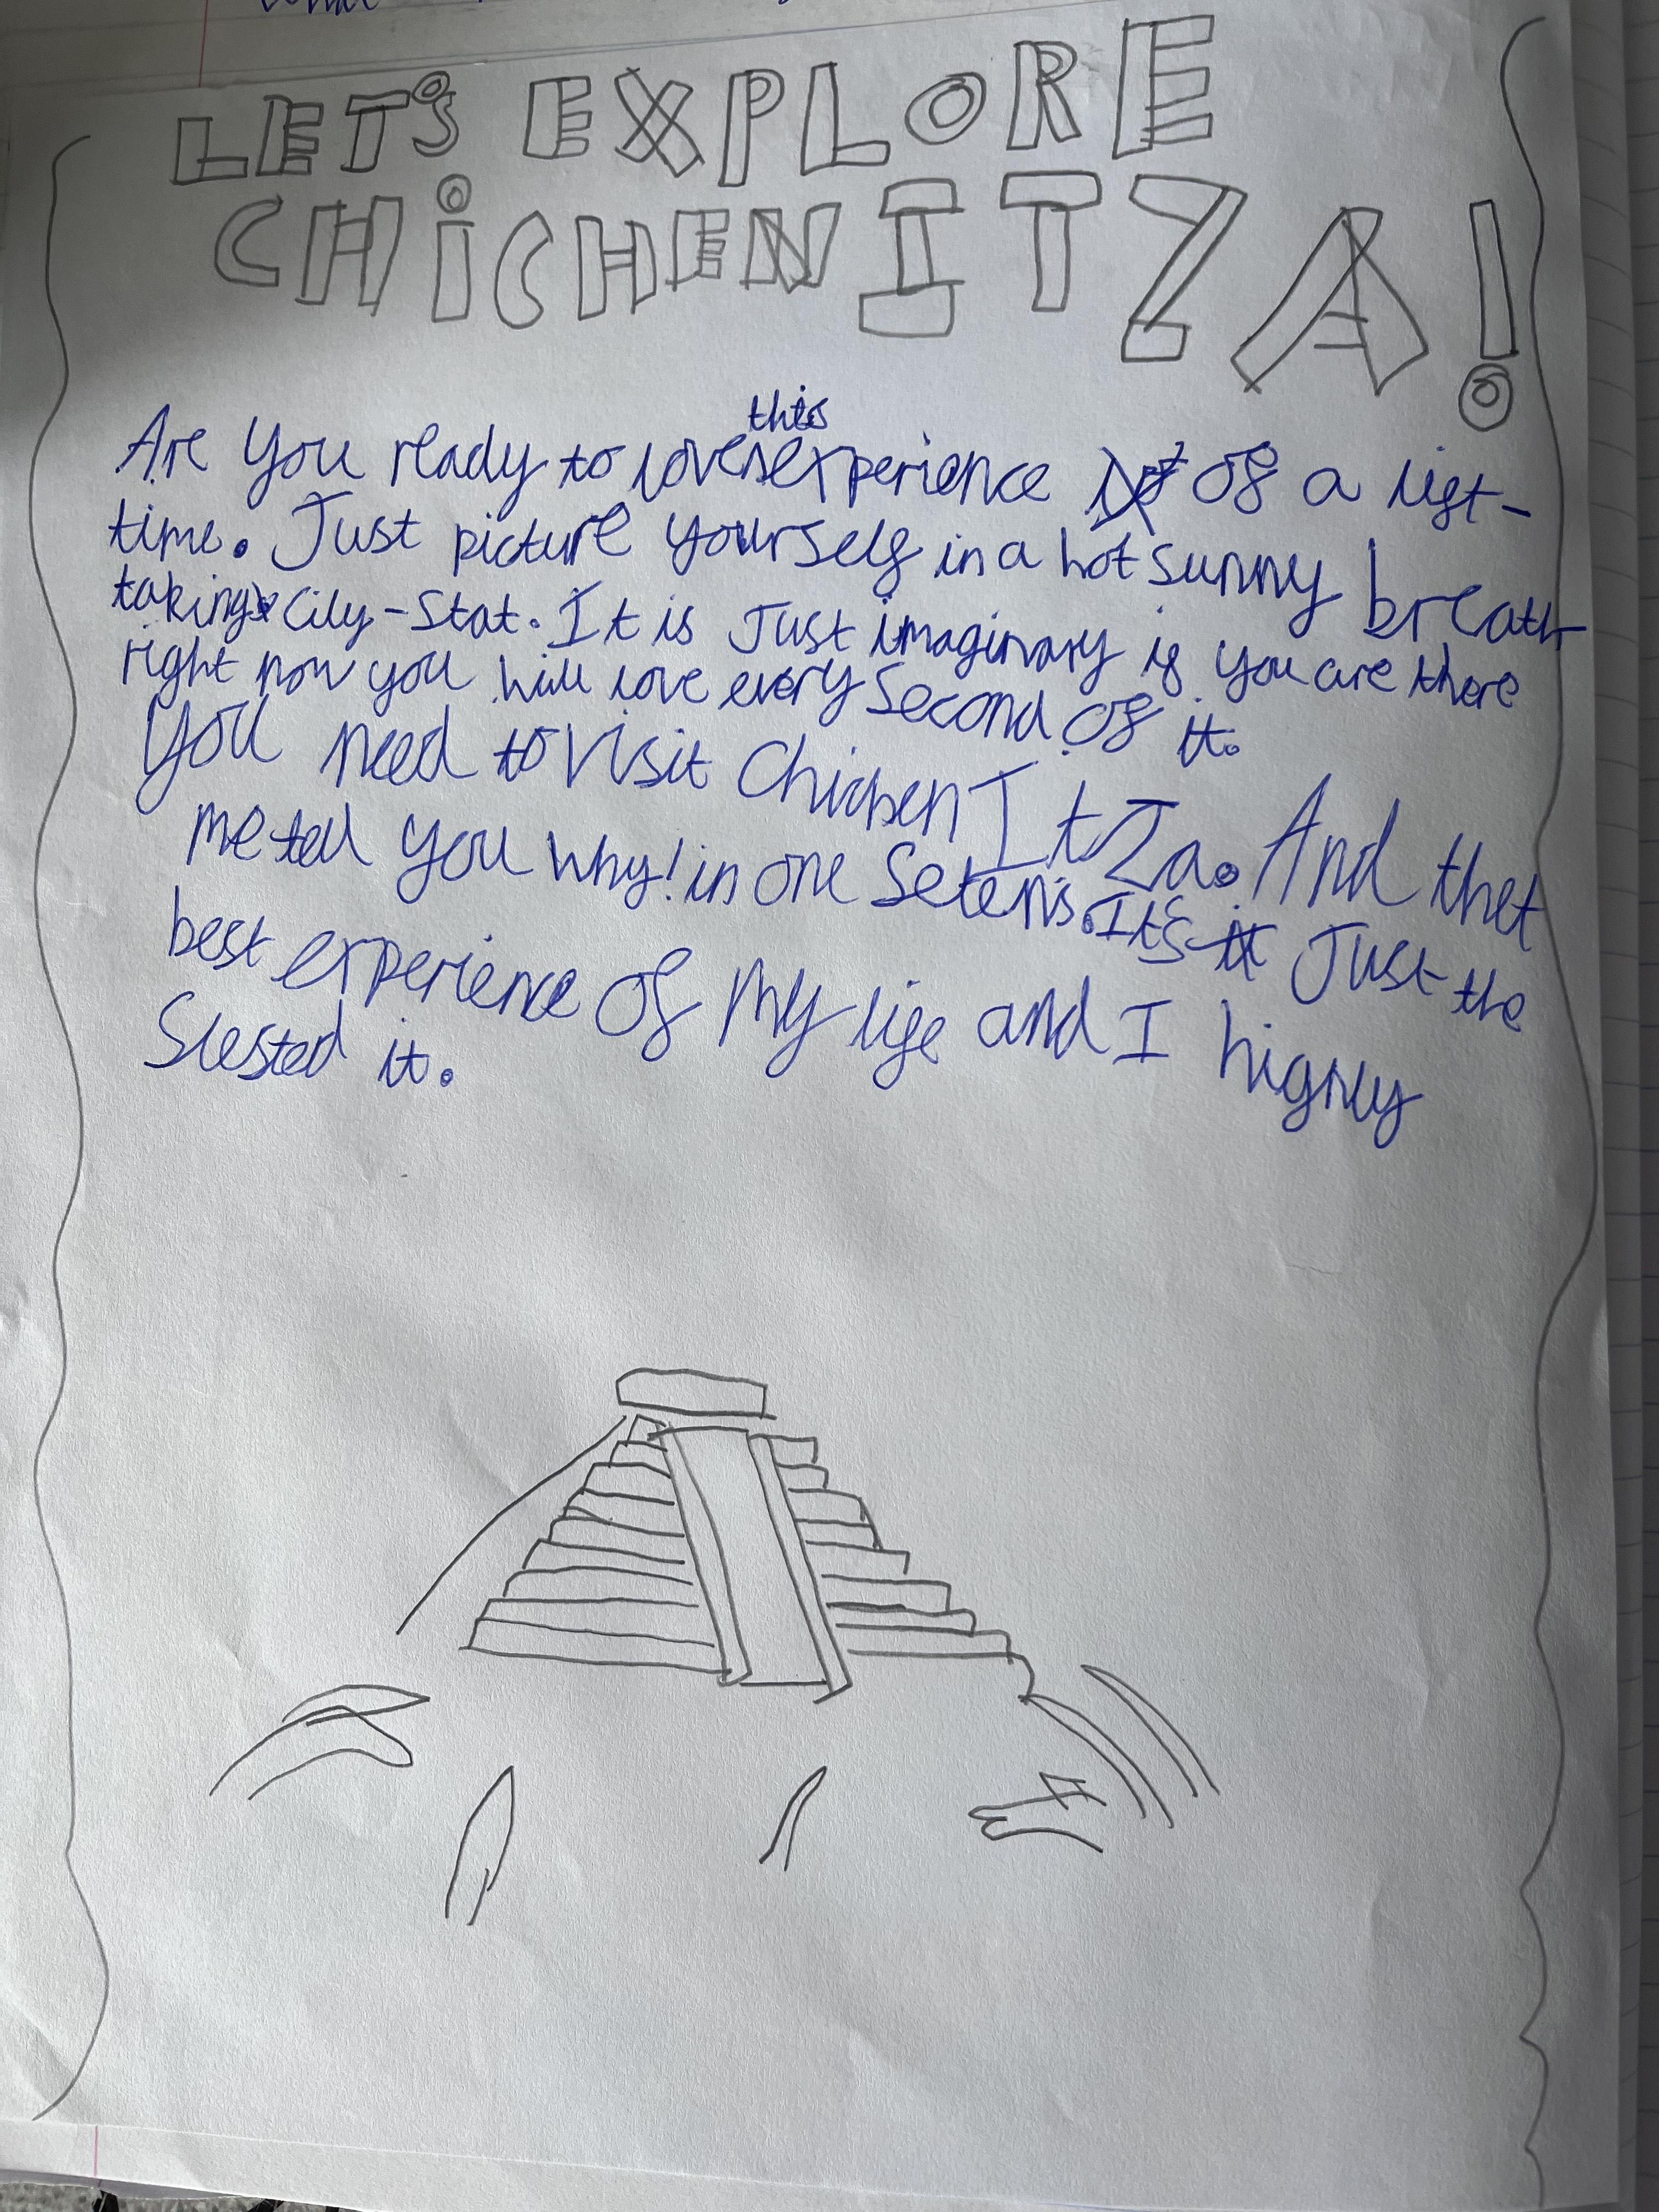 LET'S EXPLORE
CHiCHEN ITZA!
this
Are you ready to love experience of a lift-
time. Just picture yourself in a hot sunny breath
taking City-Stat. It is Just imaginary if you are there
right now you will love every second of it.
You need to visit Chichen ItZa. And thet
me tell you why! in one Setens. It's Just the
best experience of my life and I highly
Slested it.